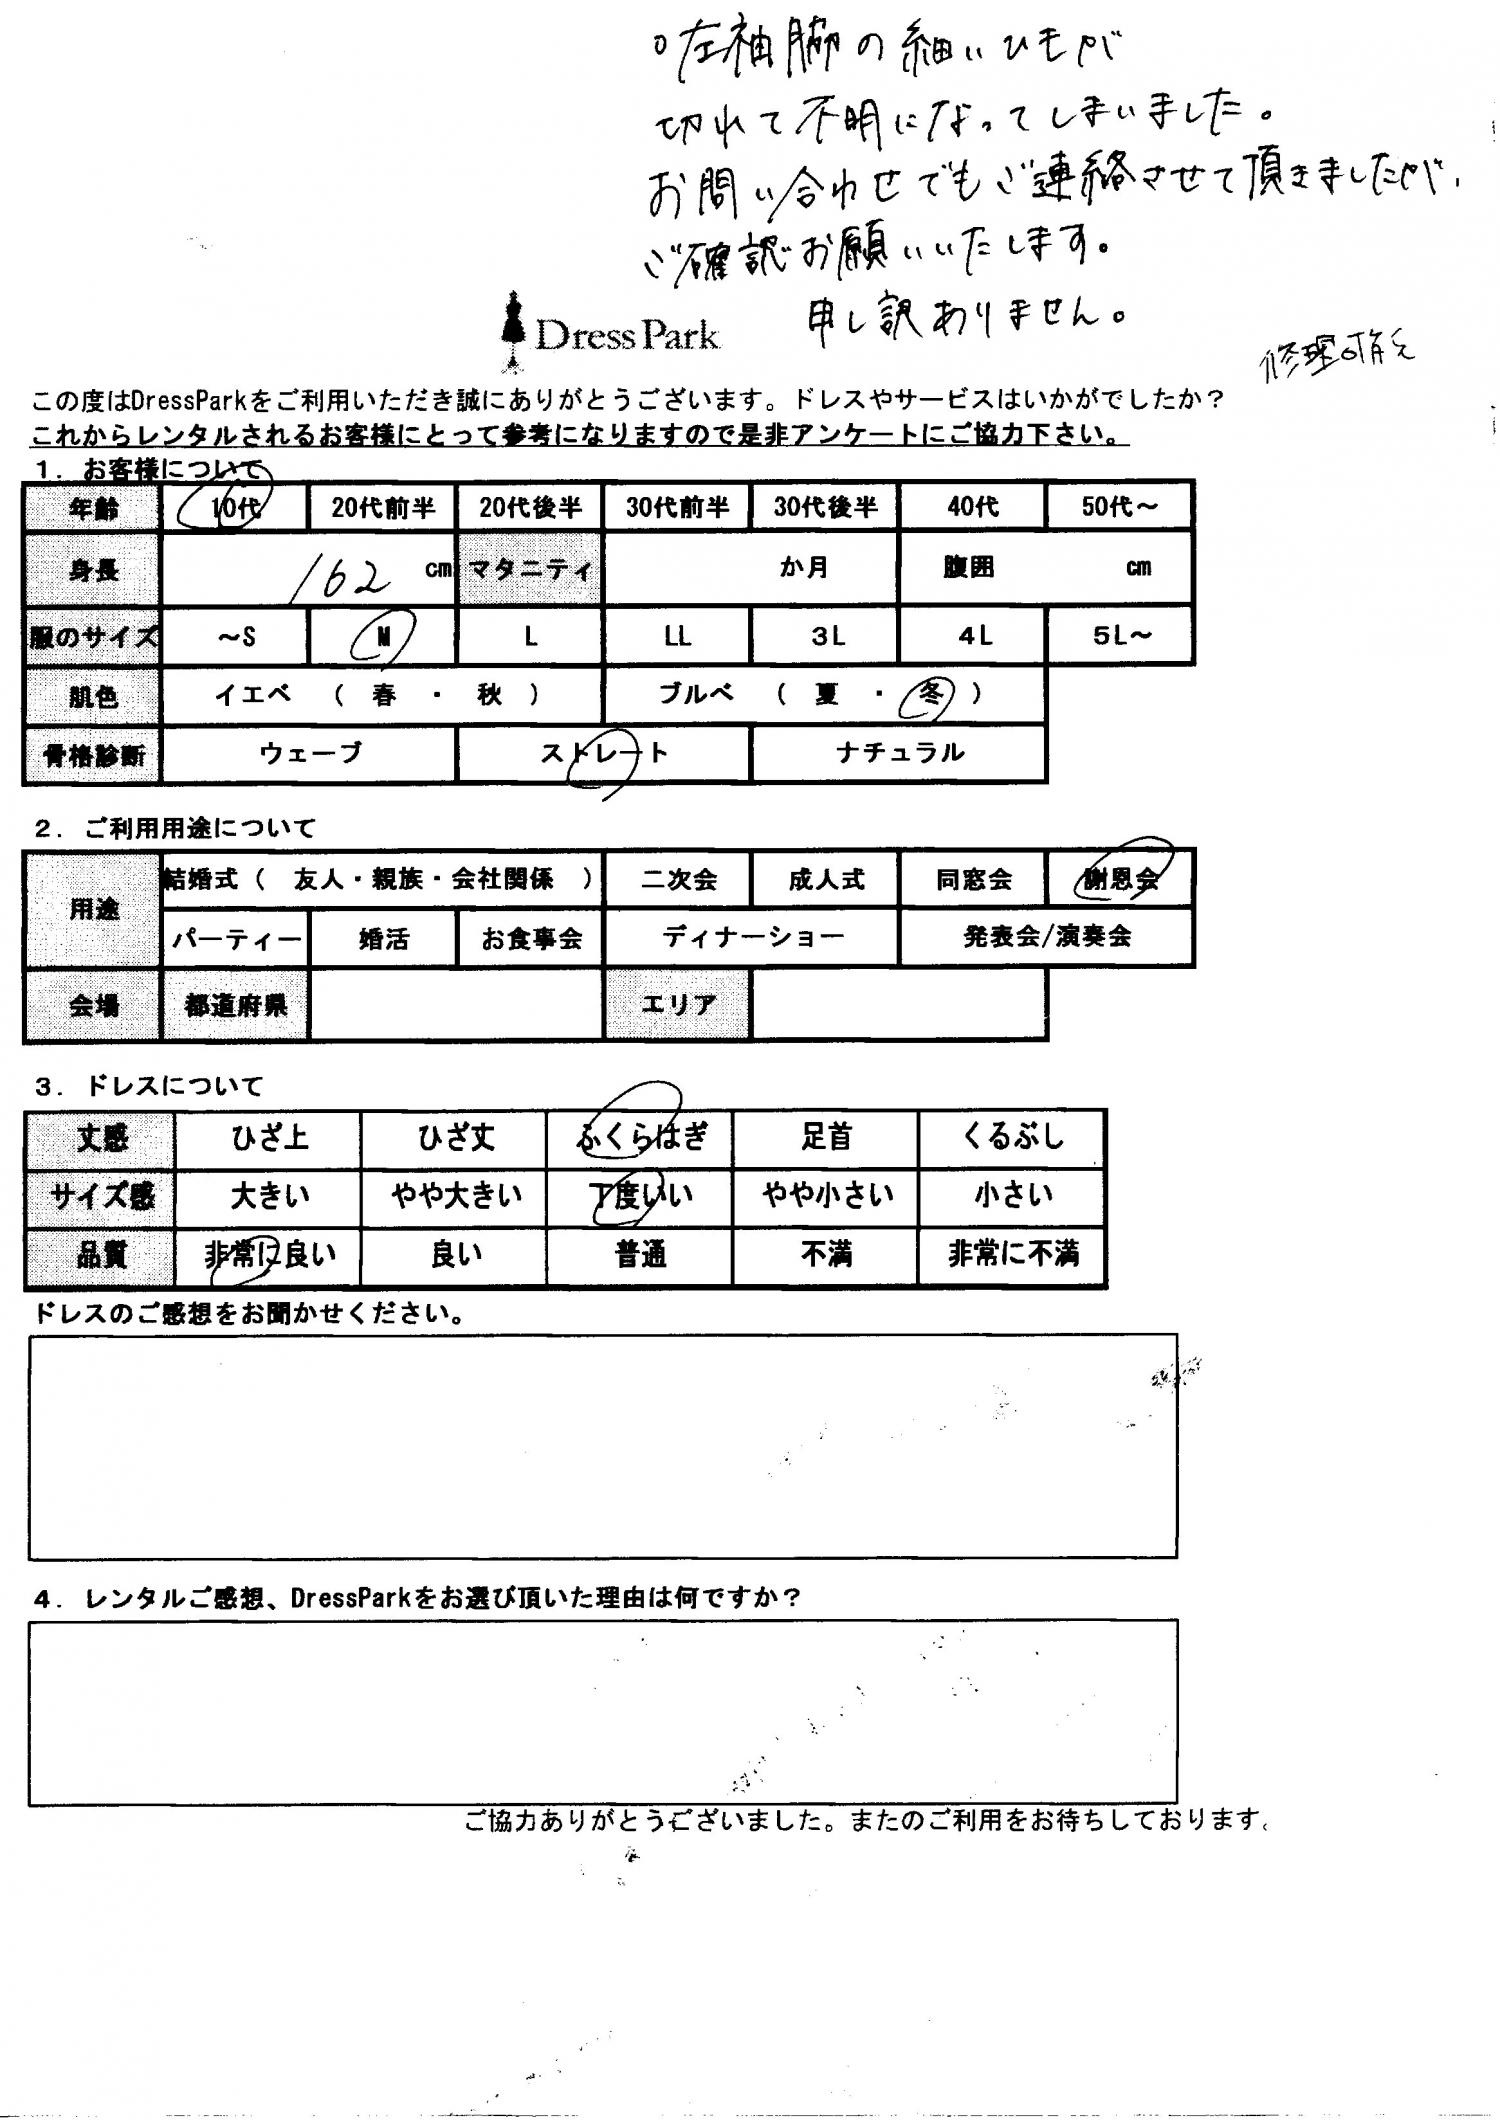 ○左袖脇の細いひもが
切れて不明になってしまいました。
お問い合わせでもご連絡させて頂きましたが、
ご確認お願いいたします。
申し訳ありません。
修理
DressPark
この度はDressParkをご利用いただき誠にありがとうございます。ドレスやサービスはいかがでしたか？
これからレンタルされるお客様にとって参考になりますので是非アンケートにご協力下さい。
１．お客様について
年齢 10代 20代前半 20代後半 30代前半 30代後半 40代 50代～
身長 162 cm マタニティ か月 腹囲 cm
服のサイズ ～S M L LL 3L 4L 5L～
肌色 イエベ （ 春 ・ 秋 ） ブルベ （ 夏 ・ 冬 ）
骨格診断 ウェーブ ストレート ナチュラル
２．ご利用用途について
用途 結婚式（ 友人・親族・会社関係 ） 二次会 成人式 同窓会 謝恩会
パーティー 婚活 お食事会 ディナーショー 発表会/演奏会
会場 都道府県 エリア
３．ドレスについて
丈感 ひざ上 ひざ丈 ふくらはぎ 足首 くるぶし
サイズ感 大きい やや大きい 丁度いい やや小さい 小さい
品質 非常に良い 良い 普通 不満 非常に不満
ドレスのご感想をお聞かせください。
４．レンタルご感想、DressParkをお選び頂いた理由は何ですか？
ご協力ありがとうございました。またのご利用をお待ちしております。